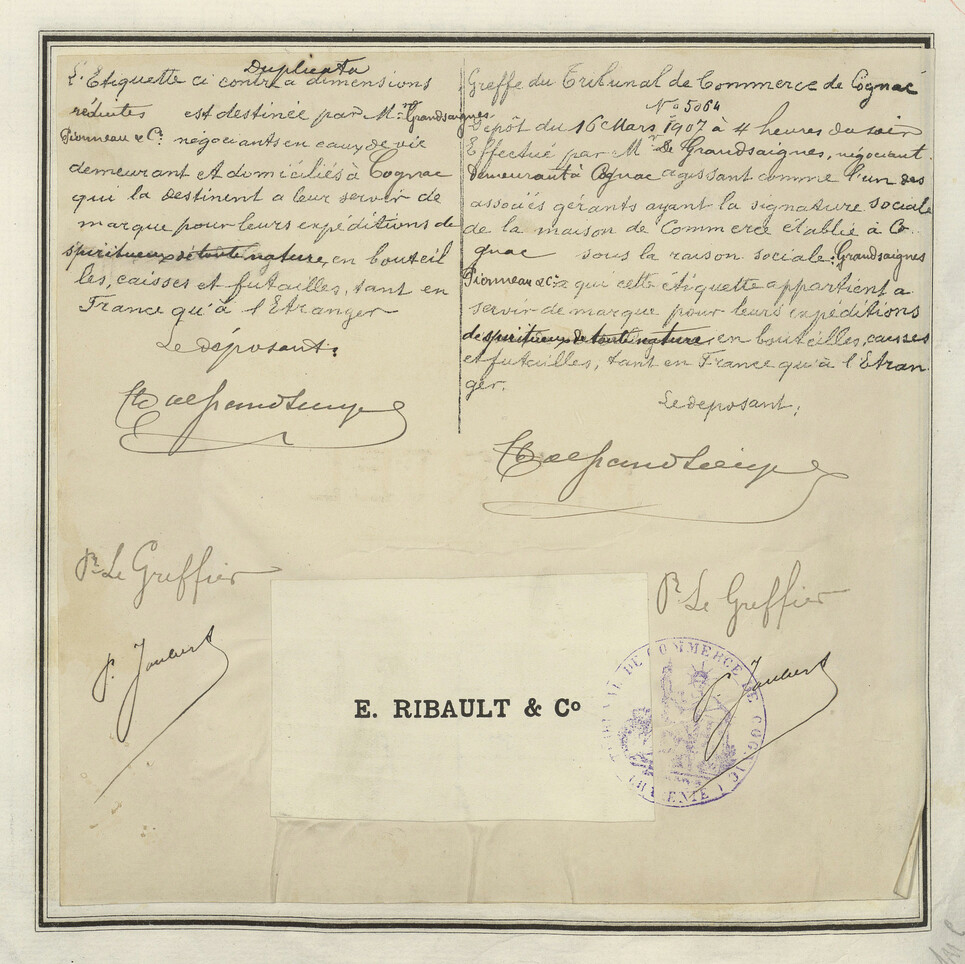 Duplicata
L'Etiquette ci contre a dimensions
réduites est destinée par Mrs Grandsaignes
Pionneau & Cie négociants en eaux de vie
demeurant et domiciliés à Cognac
qui la destinent a leur servir de
marque pour leurs expéditions de
spiritueux de toute nature, en bouteil
les, caisses et futailles, tant en
France qu'à l'Etranger
Le déposant:
Greffe du Tribunal de Commerce de Cognac
No 5064
Dépôt du 16 Mars 1907 à 4 heures du soir
Effectué par Mr De Grandsaignes, négociant
demeurant à Cognac agissant comme l'un des
associés gérants ayant la signature sociale
de la maison de Commerce établie à Co
gnac sous la raison sociale: Grandsaignes
Pionneau & Cie a qui cette étiquette appartient a
servir de marque pour leurs expéditions
de spiritueux de toute nature, en bouteilles, caisses
et futailles, tant en France qu'à l'Etran
ger.
Le deposant,
Pr Le Greffier
P. Joubert
Pr Le Greffier
P. Joubert
E. RIBAULT & Co
TRIBUNAL DE COMMERCE DE COGNAC